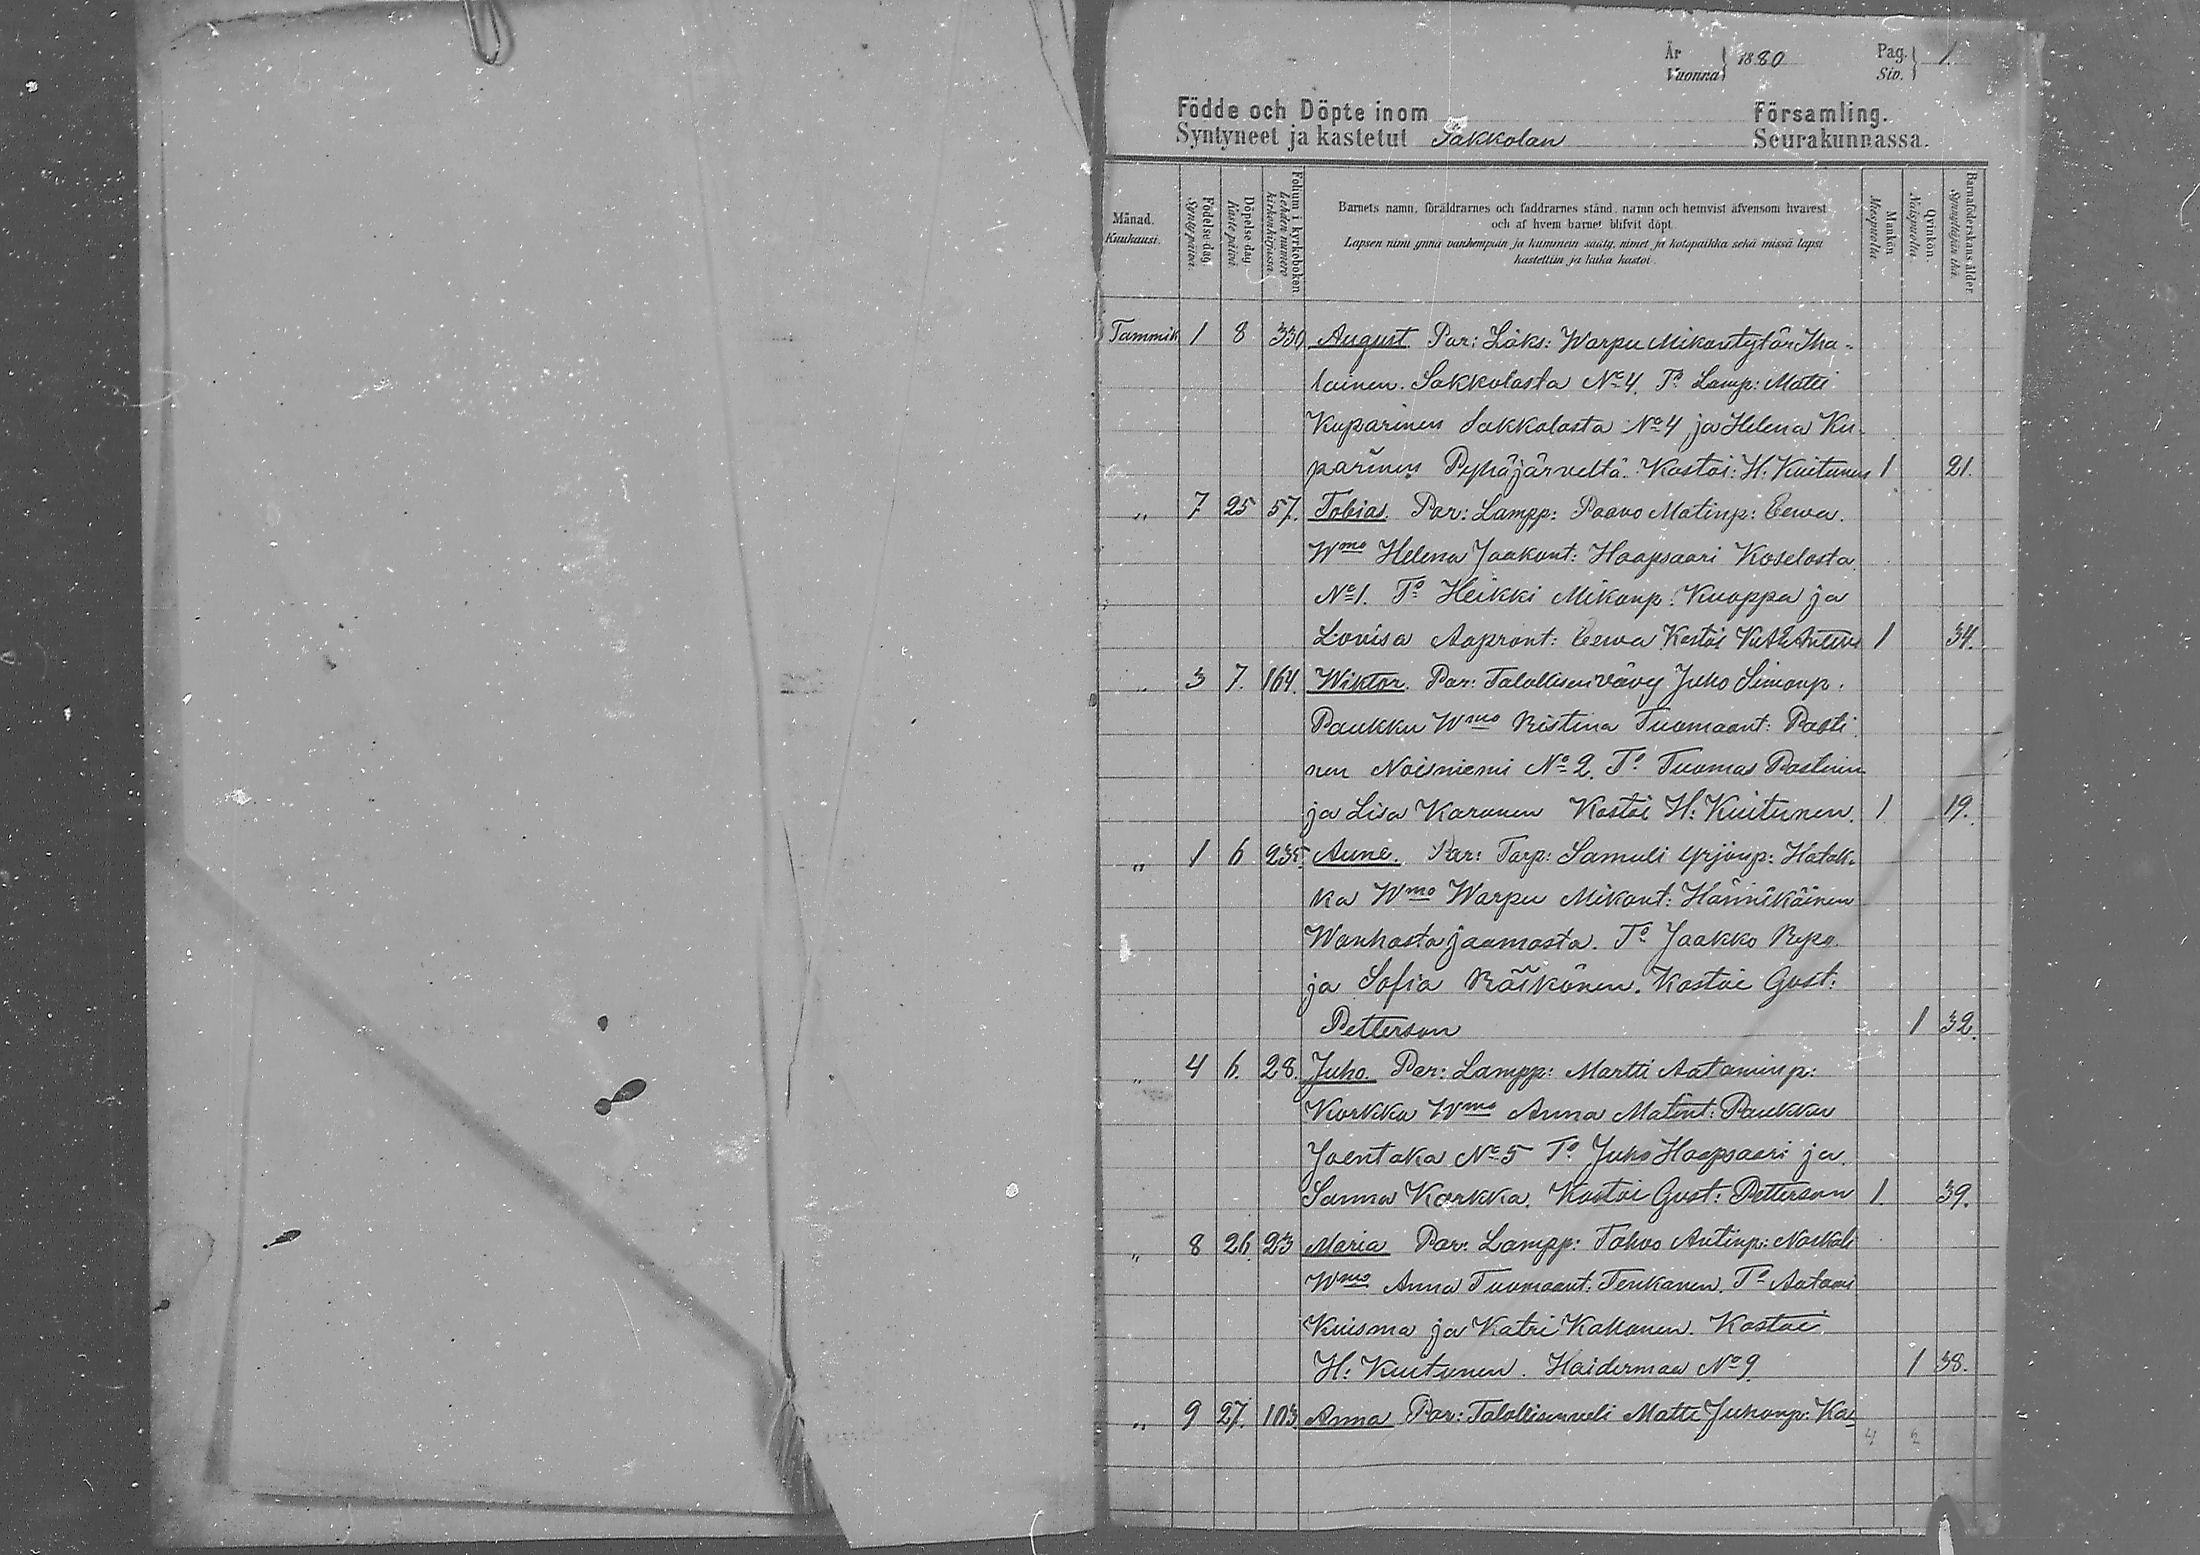 År Vuonna } 1880 Pag. Siv. } 1.
Födde och Döpte inom Församling.
Syntyneet ja kastetut Sakkolan Seurakunnassa.
Månad. Kuukausi.
Födelse dag Syntypäivä
Döpelse dag Kastepäivä
Folium i kyrkoboken Lehden numero kirkonkirjassa.
Barnets namn, föräldrarnes och faddrarnes stånd, namn och hemvist äfvensom hvarest
och af hvem barnet blifvit döpt.
Lapsen nimi ynnä vanhempain ja kummein sääty, nimet ja kotopaikka sekä missä lapsi
kastettiin ja kuka kastoi.
Mankön Miespuolia
Qvinkön. Naispuolia.
Barnaföderskans ålder Synnyttäjän ikä.
Tammik 1 8 330 August. Par: Lóks: Warpu Mikontytär Iha-
lainen. Sakkolasta No 4. To Lamp: Matti
Kuparinen Sakkolasta No 4 ja Helena Ku
parinen Pyhäjärveltä. Kastoi: H: Kuitunen 1 21.
„ 7 25 57. Tobias. Par: Lampp: Paavo Matinp: Eewa.
Wmo Helena Jaakont: Haapsaari Koselasta.
No 1. To Heikki Mikonp: Kuoppa ja
Lovisa Aapront: Eewa Kastoi 1 34.
„ 3 7. 164. Wiktor. Par: Talollisen vävy Juho Simonp.
Paukku Wmo Kristina Tuomaant: Pasti
nen Noisniemi No 2. To Tuomas Pastinen
ja Lisa Karonen Kastoi H: Kuitunen. 1 19.
„ 1 6 235. Aune. Par: Torp: Samuli Yrjönp: Hatak-
ka Wmo Warpu Mikont: Hännikäinen
Wanhastajaamasta. To Jaakko Repo.
ja Sofia Räikönen. Kastoi Gust:
Petterson 1 32.
„ 4 6. 28. Juho. Par: Lampp: Martti Aataminp:
Korkka Wmo Anna Matint: Paukku
Joentaka No 5 To Juho Haapsaari ja.
Sanna Korkka. Kastoi Gust: Petterson 1. 39.
„ 8 26. 23 Maria Par: Lampp: Tahvo Antinp: Naskali
Wmo Anna Tuomaant: Tenkanen. To Aatami
Kuisma ja Katri Kakonen. Kastoi
H: Kuitunen. Haiderman No 9. 1 38.
„ 9 27. 103. Anna Par: Talollisenveli Matti Juhonp: Ka-
4 2